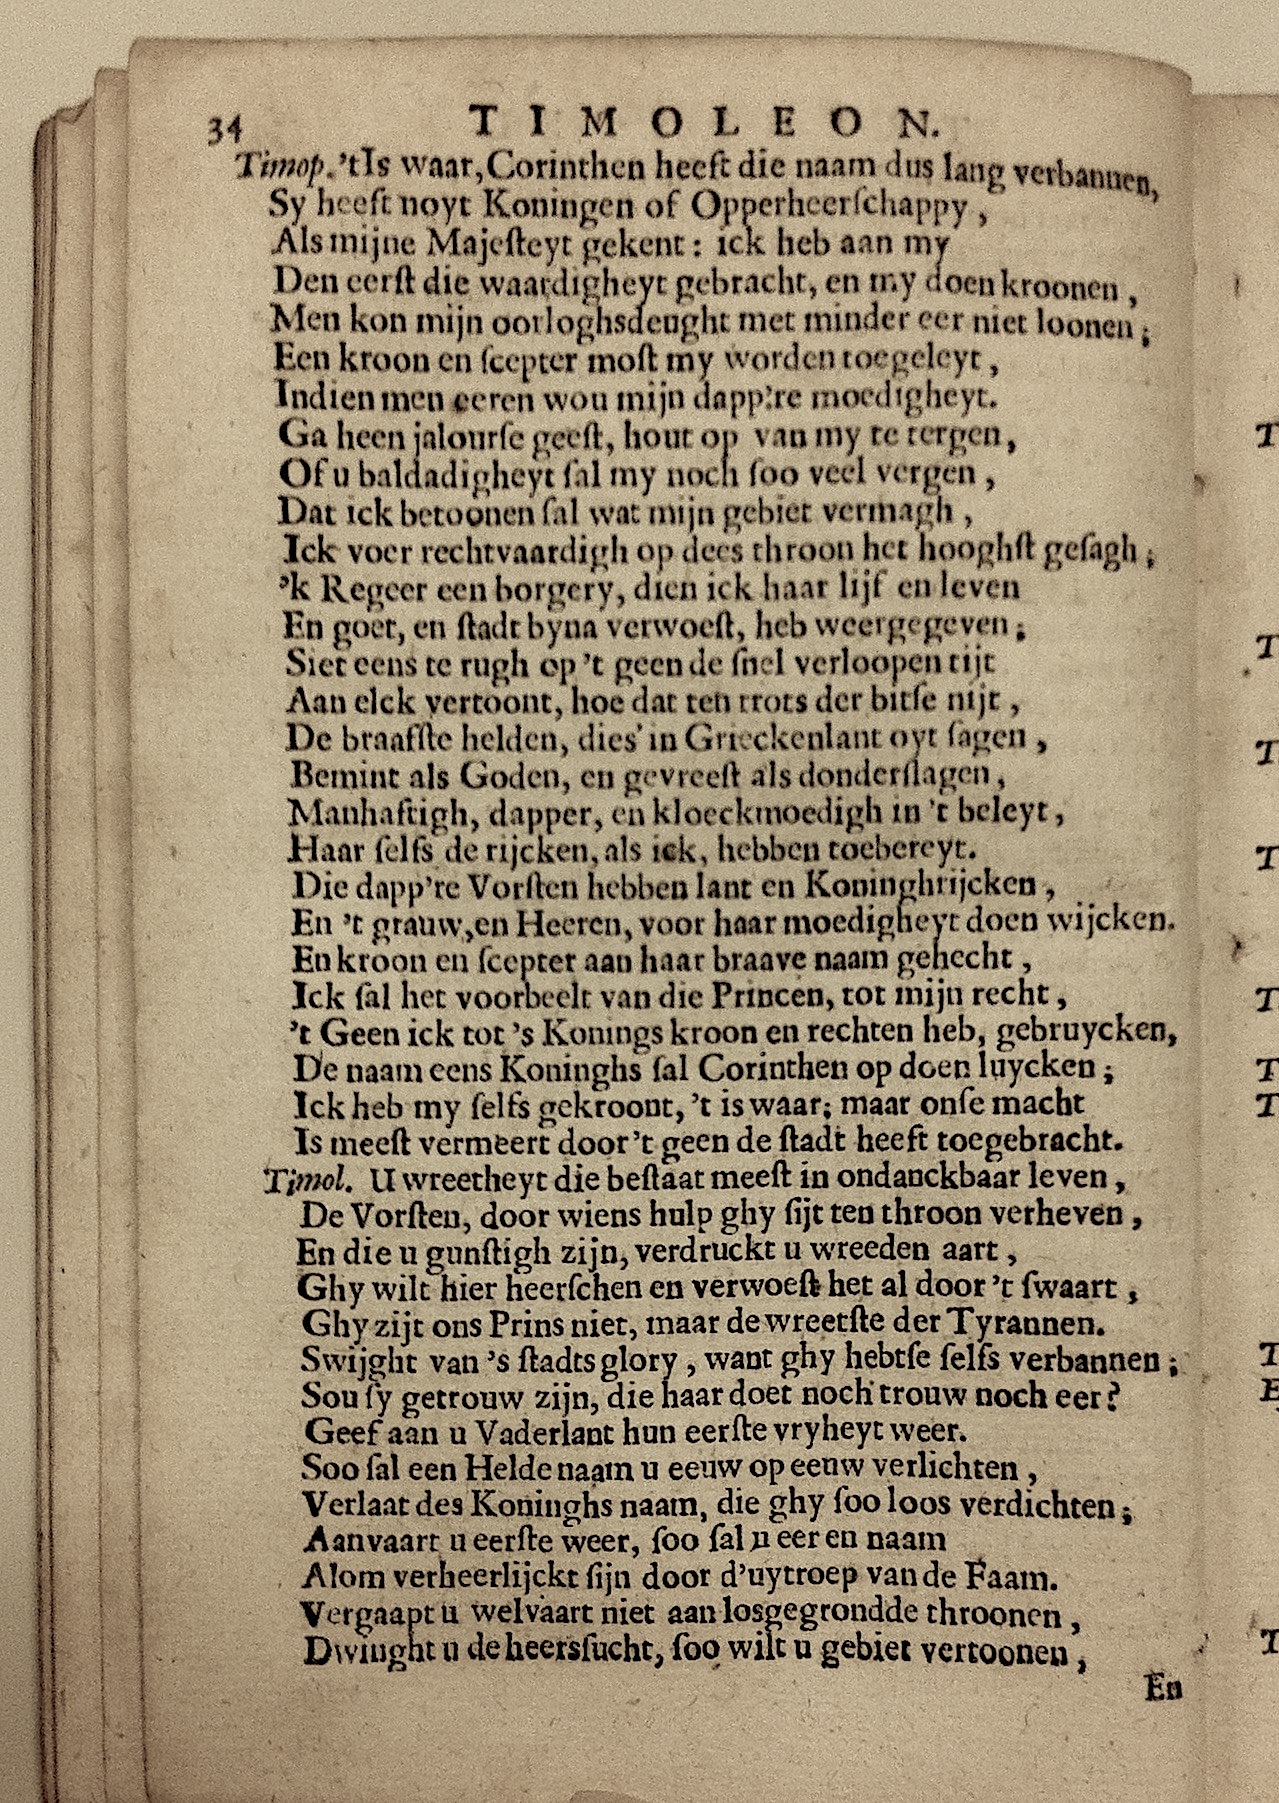 34 TIMOLEON.
Timop. 'tIs waar, Corinthen heeft die naam dus lang verbannen,
Sy heeft noyt Koningen of Opperheerſchappy,
Als mijne Majeſteyt gekent: ick heb aan my
Den eerſt die waardigheyt gebracht, en my doen kroonen,
Men kon mijn oorloghsdeught met minder eer niet loonen;
Een kroon en ſcepter moſt my worden toegeleyt,
Indien men eeren wou mijn dapp're moedigheyt.
Ga heen jalourſe geeſt, hout op van my te tergen,
Of u baldadigheyt ſal my noch ſoo veel vergen,
Dat ick betoonen ſal wat mijn gebiet vermagh,
Ick voer rechtvaardigh op dees throon het hooghſt geſagh;
'k Regeer een borgery, dien ick haar lijf en leven
En goet, en ſtadt byna verwoeſt, heb weergegeven;
Siet eens te rugh op 't geen de ſnel verloopen tijt
Aan elck vertoont, hoe dat ten trots der bitſe nijt,
De braafſte helden, dies' in Grieckenlant oyt ſagen,
Bemint als Goden, en gevreeſt als donderſlagen,
Manhaftigh, dapper, en kloeckmoedigh in 't beleyt,
Haar ſelfs de rijcken, als ick, hebben toebereyt.
Die dapp're Vorſten hebben lant en Koninghrijcken,
En 't grauw, en Heeren, voor haar moedigheyt doen wijcken.
En kroon en ſcepter aan haar braave naam gehecht,
Ick ſal het voorbeelt van die Princen, tot mijn recht,
't Geen ick tot 's Konings kroon en rechten heb, gebruycken,
De naam eens Koninghs ſal Corinthen op doen luycken;
Ick heb my ſelfs gekroont, 't is waar; maar onſe macht
Is meeſt vermeert door 't geen de ſtadt heeft toegebracht.
Timol. U wreetheyt die beſtaat meeſt in ondanckbaar leven,
De Vorſten, door wiens hulp ghy ſijt ten throon verheven,
En die u gunſtigh zijn, verdruckt u wreeden aart,
Ghy wilt hier heerſchen en verwoeſt het al door 't ſwaart,
Ghy zijt ons Prins niet, maar de wreetſte der Tyrannen.
Swijght van 's ſtadts glory, want ghy hebtſe ſelfs verbannen;
Sou ſy getrouw zijn, die haar doet noch trouw noch eer?
Geef aan u Vaderlant hun eerſte vryheyt weer.
Soo ſal een Helde naam u eeuw op eeuw verlichten,
Verlaat des Koninghs naam, die ghy ſoo loos verdichten;
Aanvaart u eerſte weer, ſoo ſal u eer en naam
Alom verheerlijckt ſijn door d'uytroep van de Faam.
Vergaapt u welvaart niet aan losgegrondde throonen,
Dwinght u de heersſucht, ſoo wilt u gebiet vertoonen,
En